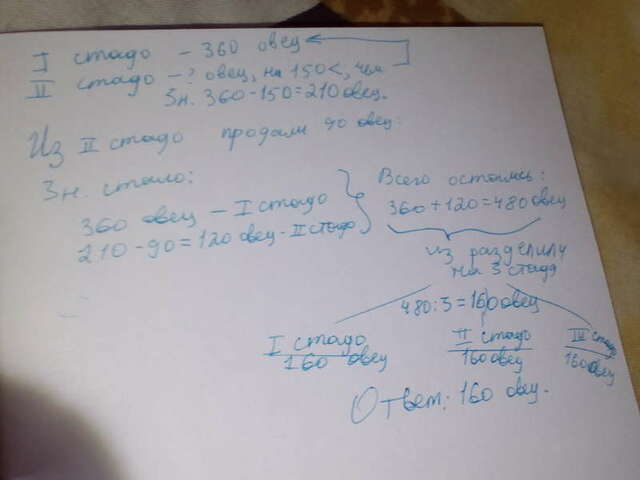 I стадо - 360 овец
II стадо - ? овец, на 150 <, чем
Зн. 360 - 150 = 210 овец.
Из II стадо продали 90 овец.
Зн. стало:
360 овец - I стадо
210 - 90 = 120 овец - II стадо
Всего остались:
360 + 120 = 480 овец
из разделили
на 3 стада
480 : 3 = 160 овец
I стадо
160 овец
II стадо
160 овец
III стадо
160 овец
Ответ: 160 овец.